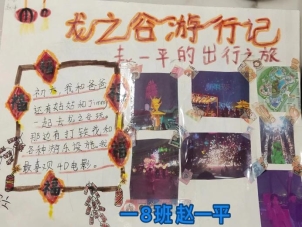 龙之谷游行记
赵一平的出行之旅
初六,我和爸爸
还有姑姑和Jimmy
一起去龙之谷玩
那边有打铁花和
各种游乐设施我
最喜欢4D电影。
福
福
一8班赵一平